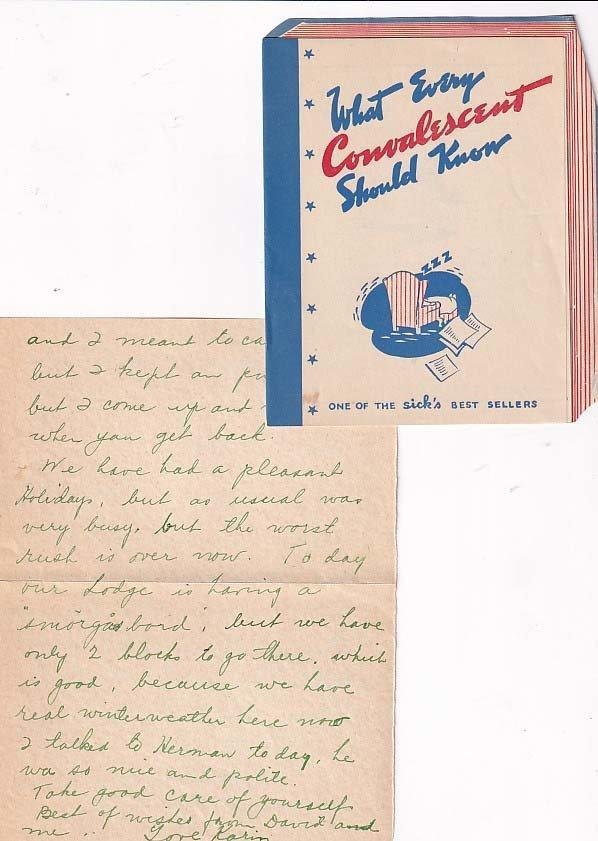 What Every
Convalescent
Should Know
ZZZ
ONE OF THE sick's BEST SELLERS
and I meant to ca
but I kept on pu
but I come up and
when you get back.
We have had a pleasant
Holidays, but as usual was
very busy, but the worst
rush is over now. To day
our Lodge is having a
"smörgåsbord", but we have
only 2 blocks to go there, which
is good, because we have
real winterweather here now
I talked to Herman to day, he
wa so nice and polite.
Take good care of yourself
Best of wishes from David and
me.. Love Karin